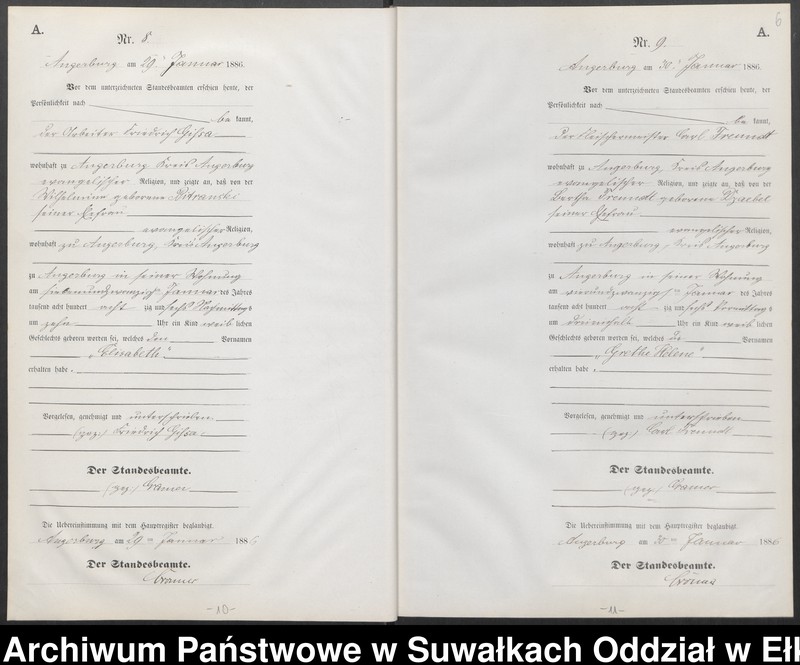 A.
Nr. 8.
Angerburg am 29. Januar 1886.
Vor dem unterzeichneten Standesbeamten erschien heute, der
Persönlichkeit nach
bekannt,
der Arbeiter Friedrich
wohnhaft zu Angerburg Kreis Angerburg
evangelischer Religion, und zeigte an, daß von der
Wilhelmine geborene
seiner Ehefrau
evangelischer Religion,
wohnhaft zu Angerburg, Kreis Angerburg
zu Angerburg in seiner Wohnung
am siebenundzwanzigsten Januar des Jahres
tausend acht hundert achtzig und sechs Nachmittags
um zehn Uhr ein Kind weiblichen
Geschlechts geboren worden sei, welches den Vornamen
„Elisabeth"
erhalten habe.
Vorgelesen, genehmigt und unterschrieben.
(gez.) Friedrich
Der Standesbeamte.
(gez.) Cramer
Die Uebereinstimmung mit dem Hauptregister beglaubigt.
Angerburg am 29ten Januar 1886
Der Standesbeamte.
Cramer
-10-
6
A.
Nr. 9.
Angerburg am 30. Januar 1886.
Vor dem unterzeichneten Standesbeamten erschien heute, der
Persönlichkeit nach
bekannt,
der Fleischermeister Carl Freundt
wohnhaft zu Angerburg, Kreis Angerburg
evangelischer Religion, und zeigte an, daß von der
Bertha Freundt geborene
seiner Ehefrau
evangelischer Religion,
wohnhaft zu Angerburg, Kreis Angerburg
zu Angerburg in seiner Wohnung
am vierundzwanzigsten Januar des Jahres
tausend acht hundert achtzig und sechs Vormittags
um Uhr ein Kind weiblichen
Geschlechts geboren worden sei, welches die Vornamen
„Grethe Helene"
erhalten habe.
Vorgelesen, genehmigt und unterschrieben
(gez.) Carl Freundt
Der Standesbeamte.
(gez.) Cramer
Die Uebereinstimmung mit dem Hauptregister beglaubigt.
Angerburg am 30ten Januar 1886
Der Standesbeamte.
Cramer
-11-
Archiwum Państwowe w Suwałkach Oddział w Ełk